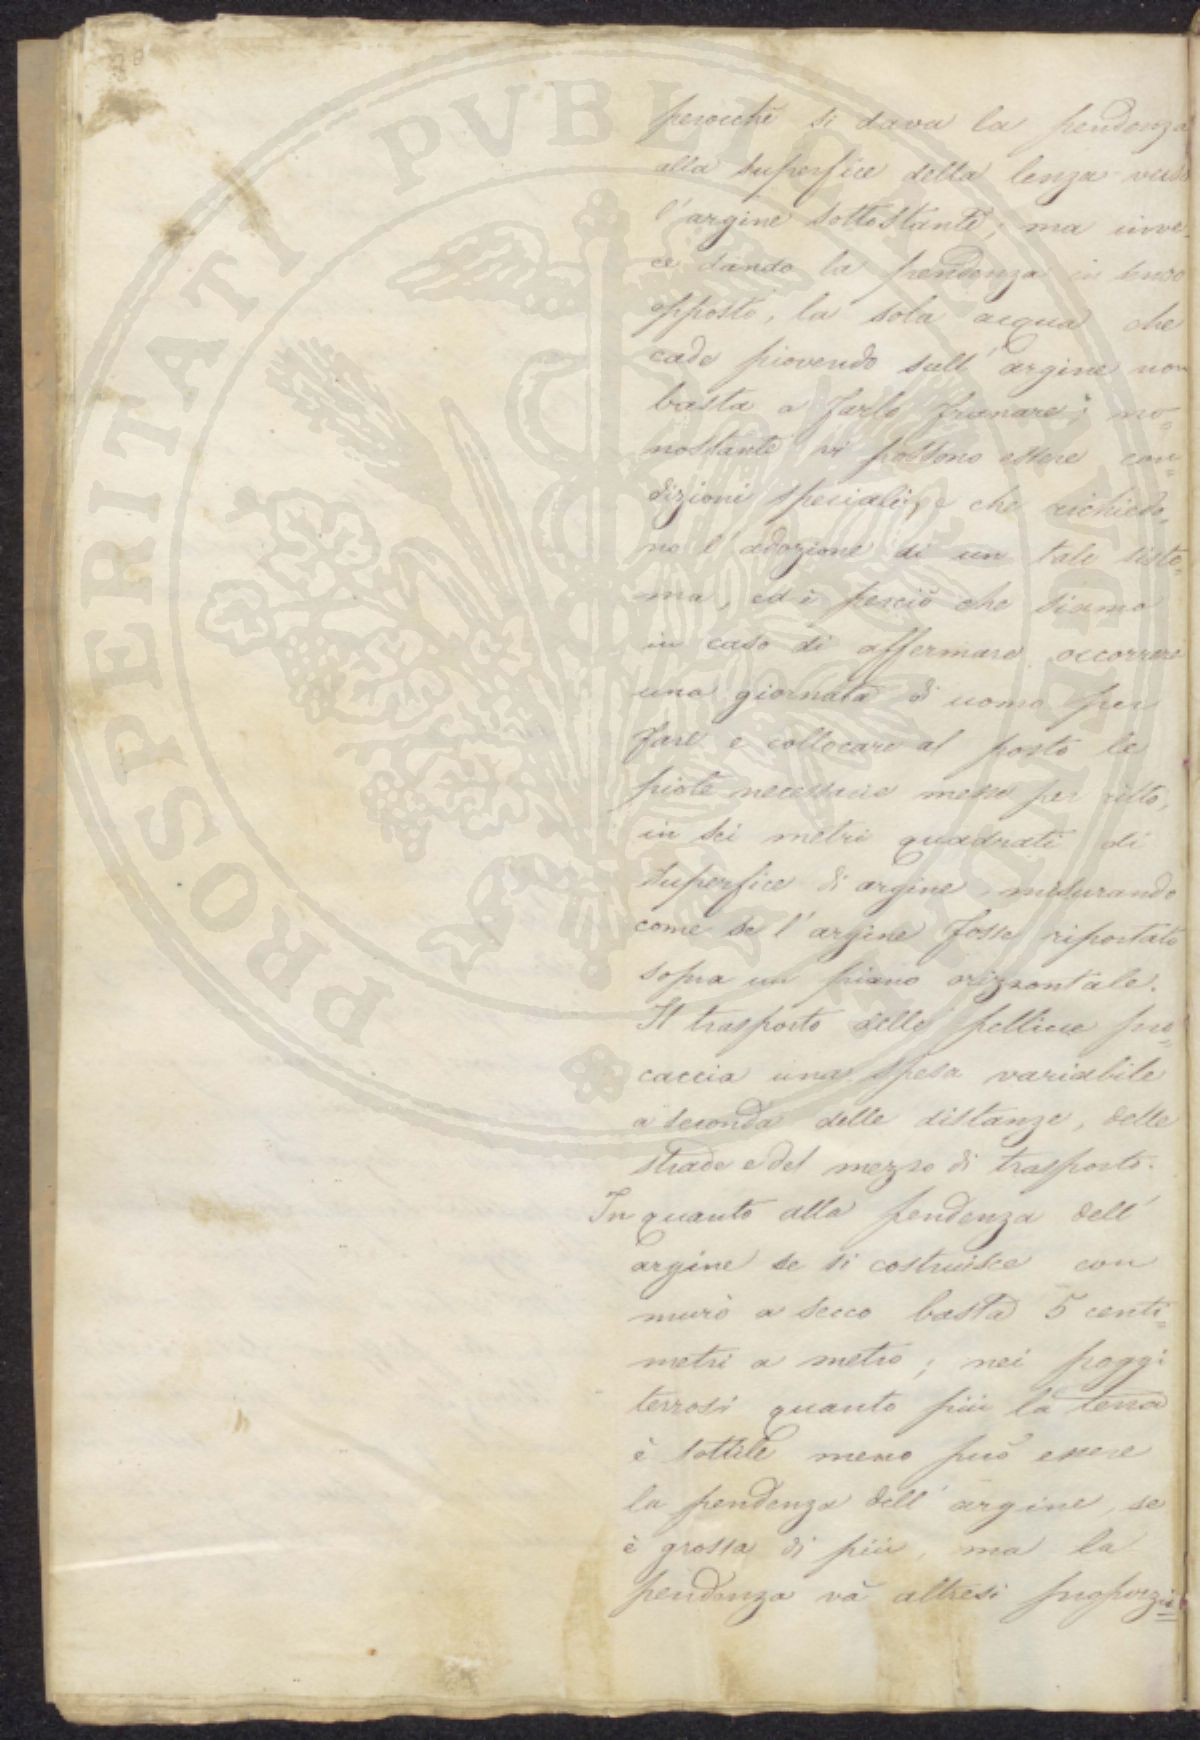 perocchè si dava la pendenza
alla superfice della lenza verso
l'argine sottostante; ma inve-
ce dando la pendenza in senso
opposto, la sola acqua che
cade piovendo sull'argine non
basta a farlo franare; no=
nostante vi possono essere con=
dizioni speciali, e che richiedo=
no l'adozione di un tale siste=
ma, ed è perciò che siamo
in caso di affermare occorrere
una giornata di uomo per
fare e collocare al posto le
piote necessarie messe per ritto,
in sei metri quadrati di
superfice di argine misurando
come se l'argine fosse riportato
sopra un piano orizzontale.
Il trasporto delle pellicce pro=
caccia una spesa variabile
a seconda delle distanze, delle
strade e del mezzo di trasporto.
In quanto alla pendenza dell'
argine se si costruisce con
muro a secco basta 5 centi=
metri a metro; nei poggi
terrosi quanto più la terra
è sottile meno può essere
la pendenza dell'argine, se
è grossa di più, ma la
pendenza và altresì proporzio=
PROSPERITATI PVBLICAE